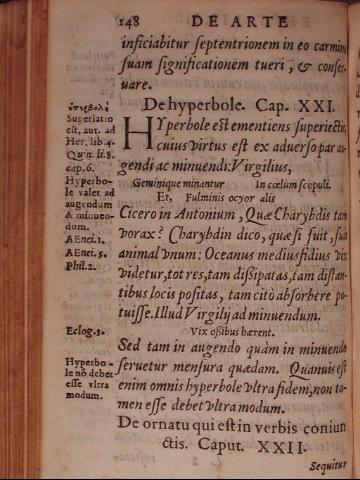 148 DE ARTE
inficiabitur septentrionem in eo carmine
suam significationem tueri, & conser-
uare.
De hyperbole. Cap. XXI.
ὑπερβολὴ
Superlatio
est, aut. ad
Her. lib. 4.
Quin. li. 8.
cap. 6.
Hyperbo-
le valet ad
augendum
& minuen-
dum.
AEnei. 1.
AEnei. 5.
Phil. 2.
HYperbole est ementiens superiectio,
cuius virtus est ex aduerso par au-
gendi ac minuendi: Virgilius,
Geminique minantur In cœlum scopuli.
Et, Fulminis ocyor alis
Cicero in Antonium, Quæ Charybdis tam
vorax? Charybdin dico, quæ si fuit, fuit
animal vnum: Oceanus mediusfidius vix
videtur, tot res, tam dissipatas, tam distan-
tibus locis positas, tam citò absorbere po-
tuisse. Illud Virgilij ad minuendum.
Eclog. 3. Vix oßibus hærent.
Sed tam in augendo quàm in minuendo
Hyperbo-
le nõ debet
esse vltra
modum.
seruetur mensura quædam. Quanuis est
enim omnis hyperbole vltra fidem, non ta-
men esse debet vltra modum.
De ornatu qui est in verbis coniun
ctis. Caput. XXII.
Sequitur